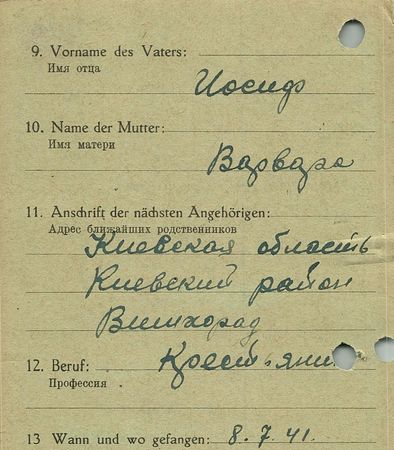 9. Vorname des Vaters:
Имя отца
Иосиф
10. Name der Mutter:
Имя матери
Варвара
11. Anschrift der nächsten Angehörigen:
Адрес ближайших родственников
Киевская область
Киевский район
Вишгород
12. Beruf:
Крестьянин
Профессия
13 Wann und wo gefangen: 8.7.41.